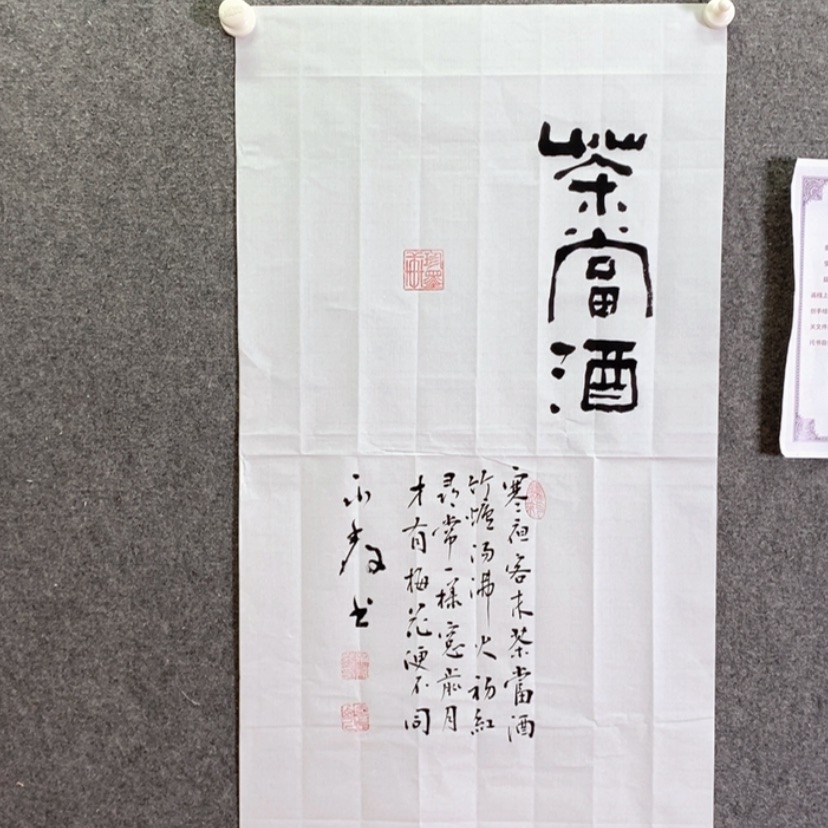 茶當酒
寒夜客来茶當酒
竹爐湯沸火初紅
尋常一樣窓前月
才有梅花便不同